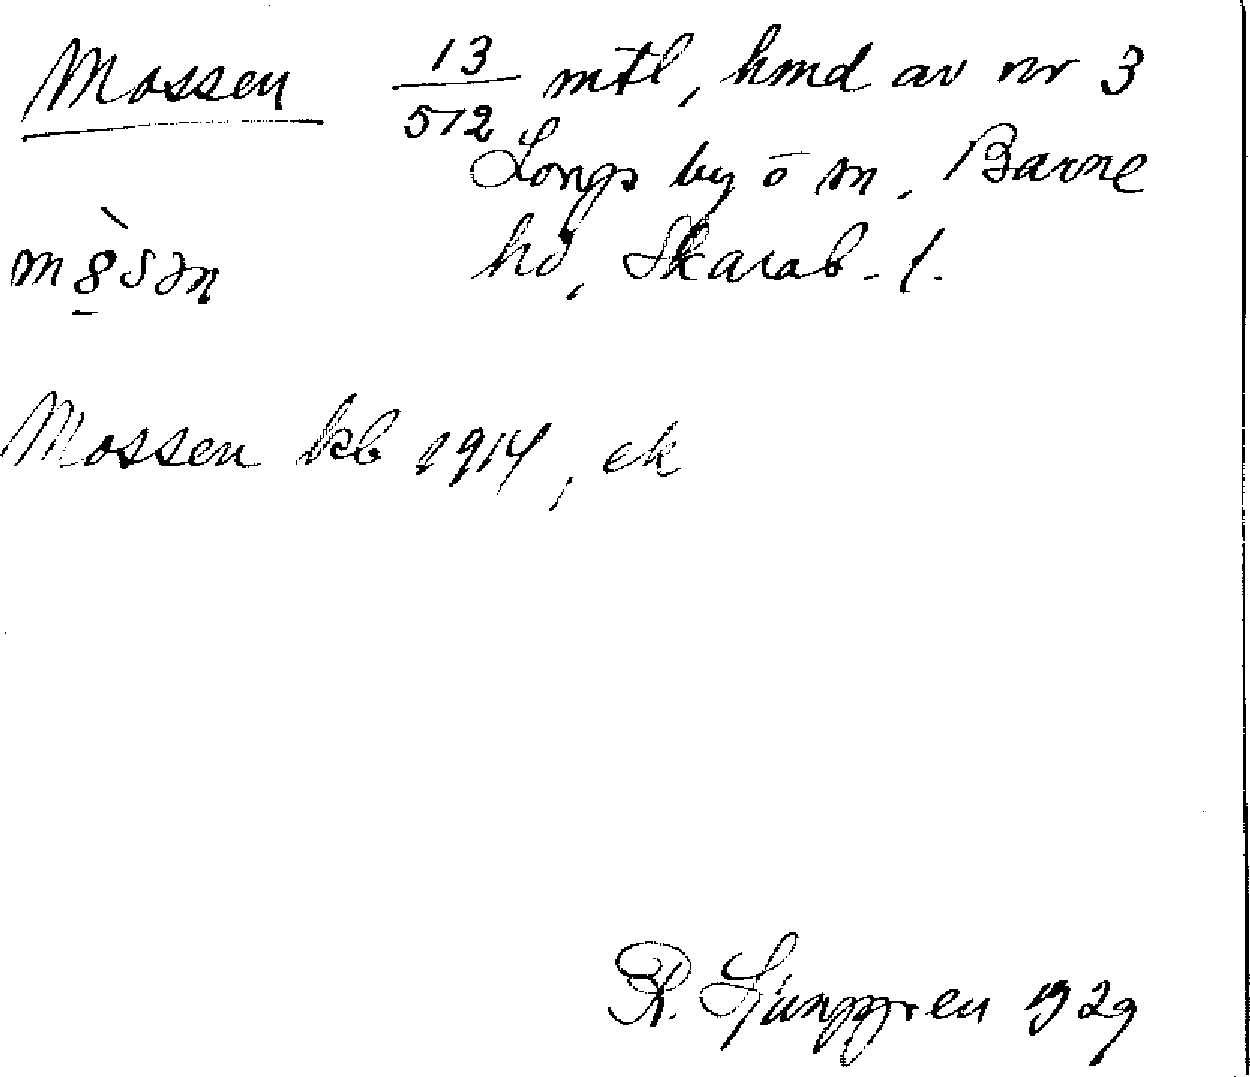 Mossen 13/512 mtl, hmd av nr 3
Longs by o m, Barne
hd, Skarab. l.
Mossen kb 1914, ek
R. Ljunggren 1929